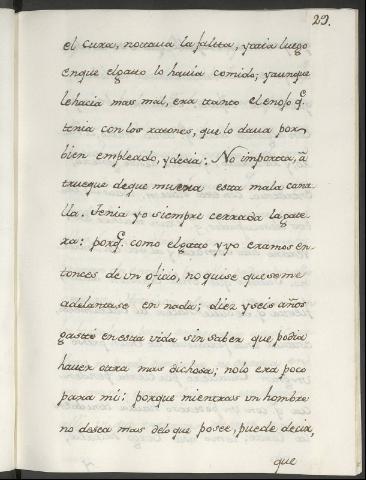 29.
el cura, notava la falta, ydaia luego
enque elgato lo havia comido; yaunque
lehacia mas mal, era tanto el enojo q.^e
tenia con los ratones, que lo dava por
bien empleado, ydecia: No importa, â
trueque deque muera esta mala cana-
lla. Tenia yo siempre cerrada la gate-
ra: porq.^e como elgato y yo eramos en-
tonces de un oficio, no quise queseme
adelantase en nada; diez yseis años
gasté enesta vida sin saber que podia
haver otra mas dichosa; nolo era poco
para mi: porque mientras un hombre
no desea mas delo que posee, puede decir,
que